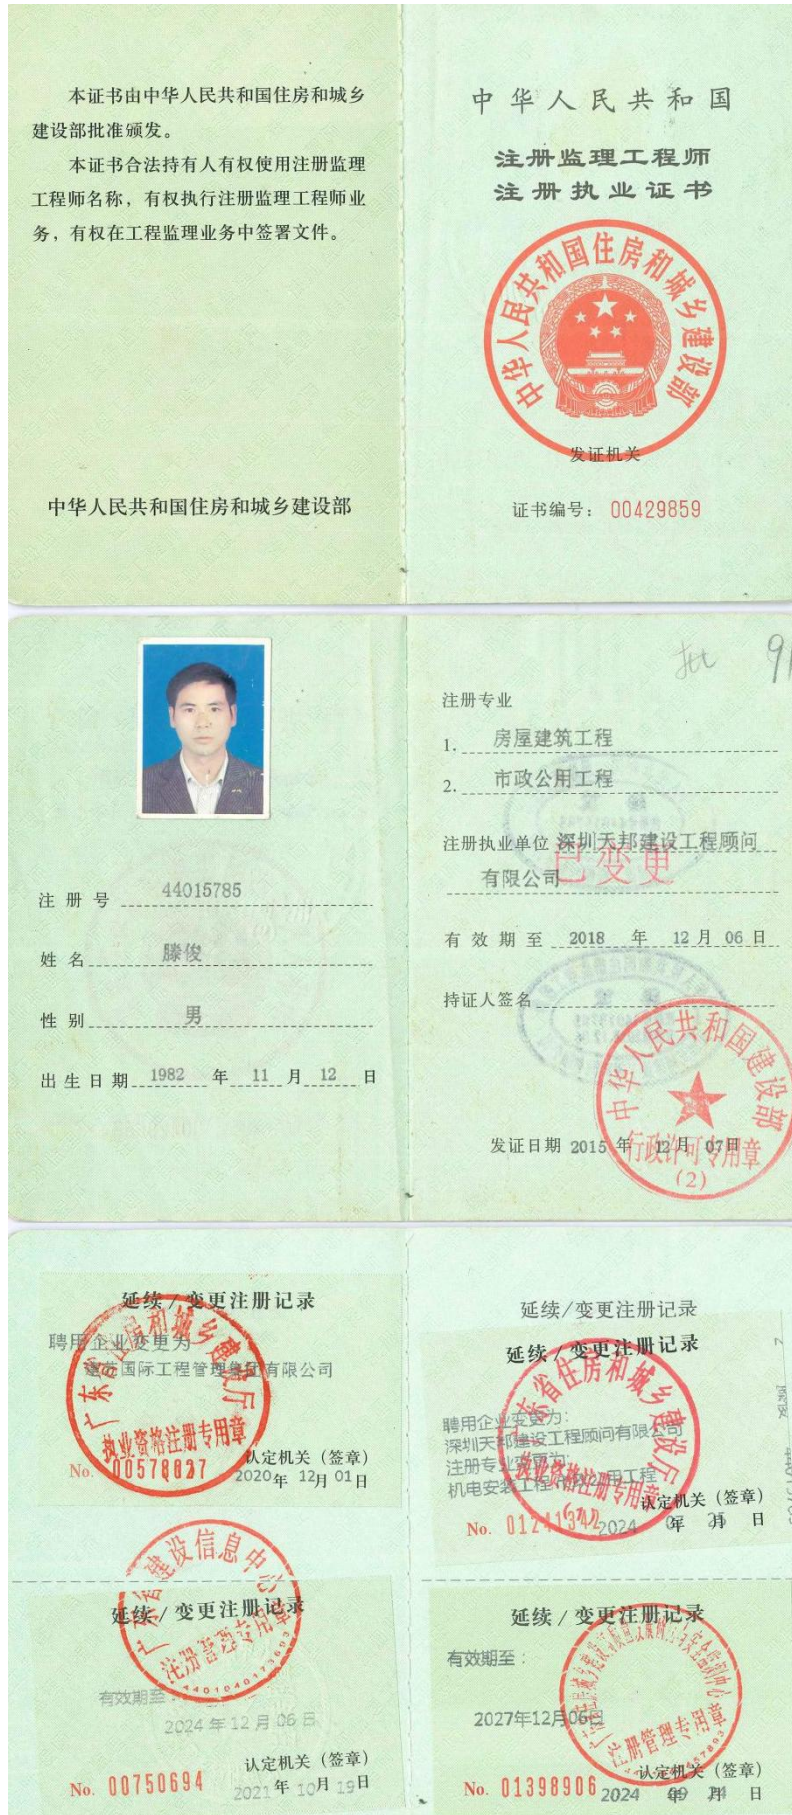 本证书由中华人民共和国住房和城乡
建设部批准颁发。
本证书合法持有人有权使用注册监理
工程师名称，有权执行注册监理工程师业
务，有权在工程监理业务中签署文件。
中华人民共和国住房和城乡建设部
中华人民共和国
注册监理工程师
注册执业证书
中华人民共和国住房和城乡建设部
发证机关
证书编号： 00429859
注册号 44015785
姓名 滕俊
性别 男
出生日期 1982 年 11 月 12 日
注册专业
1. 房屋建筑工程
2. 市政公用工程
注册执业单位 深圳天邦建设工程顾问
有限公司
已变更
有效期至 2018 年 12 月 06 日
持证人签名
中华人民共和国建设部
发证日期 2015 年 12 月 07 日
行政许可专用章
(2)
延续 / 变更注册记录
聘用企业变更为
国际工程管理集团有限公司
广东省住房和城乡建设厅
执业资格注册专用章
认定机关（签章）
No. 00578827 2020 年 12 月 01 日
广东省建设信息中心
延续 / 变更注册记录
注册管理专用章
4401040173693
有效期至：
2024 年 12 月 06 日
认定机关（签章）
No. 00750694 2021 年 10 月 19 日
延续/变更注册记录
延续 / 变更注册记录
广东省住房和城乡建设厅
聘用企业变更为：
深圳天邦建设工程顾问有限公司
注册专业变更为：
机电安装工程 市政公用工程
执业资格注册专用章
(1)
认定机关（签章）
No. 01241342 2024 年 月 日
延续 / 变更注册记录
有效期至：
2027年12月06日
注册管理专用章
认定机关（签章）
No. 01398906 2024 年 09 月 24 日